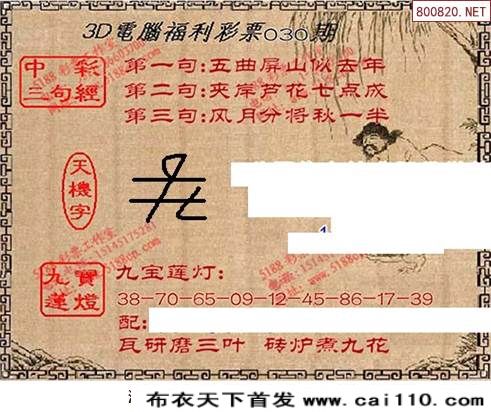 800820.NET
3D電腦福利彩票030期
中彩三句經
第一句:五曲屏山似去年
第二句:夹岸芦花七点成
第三句:风月分将秋一半
天機字
九寶蓮燈
九宝莲灯:
38-70-65-09-12-45-86-17-39
配:
瓦研磨三叶 砖炉煮九花
布衣天下首发 www.cai110.com